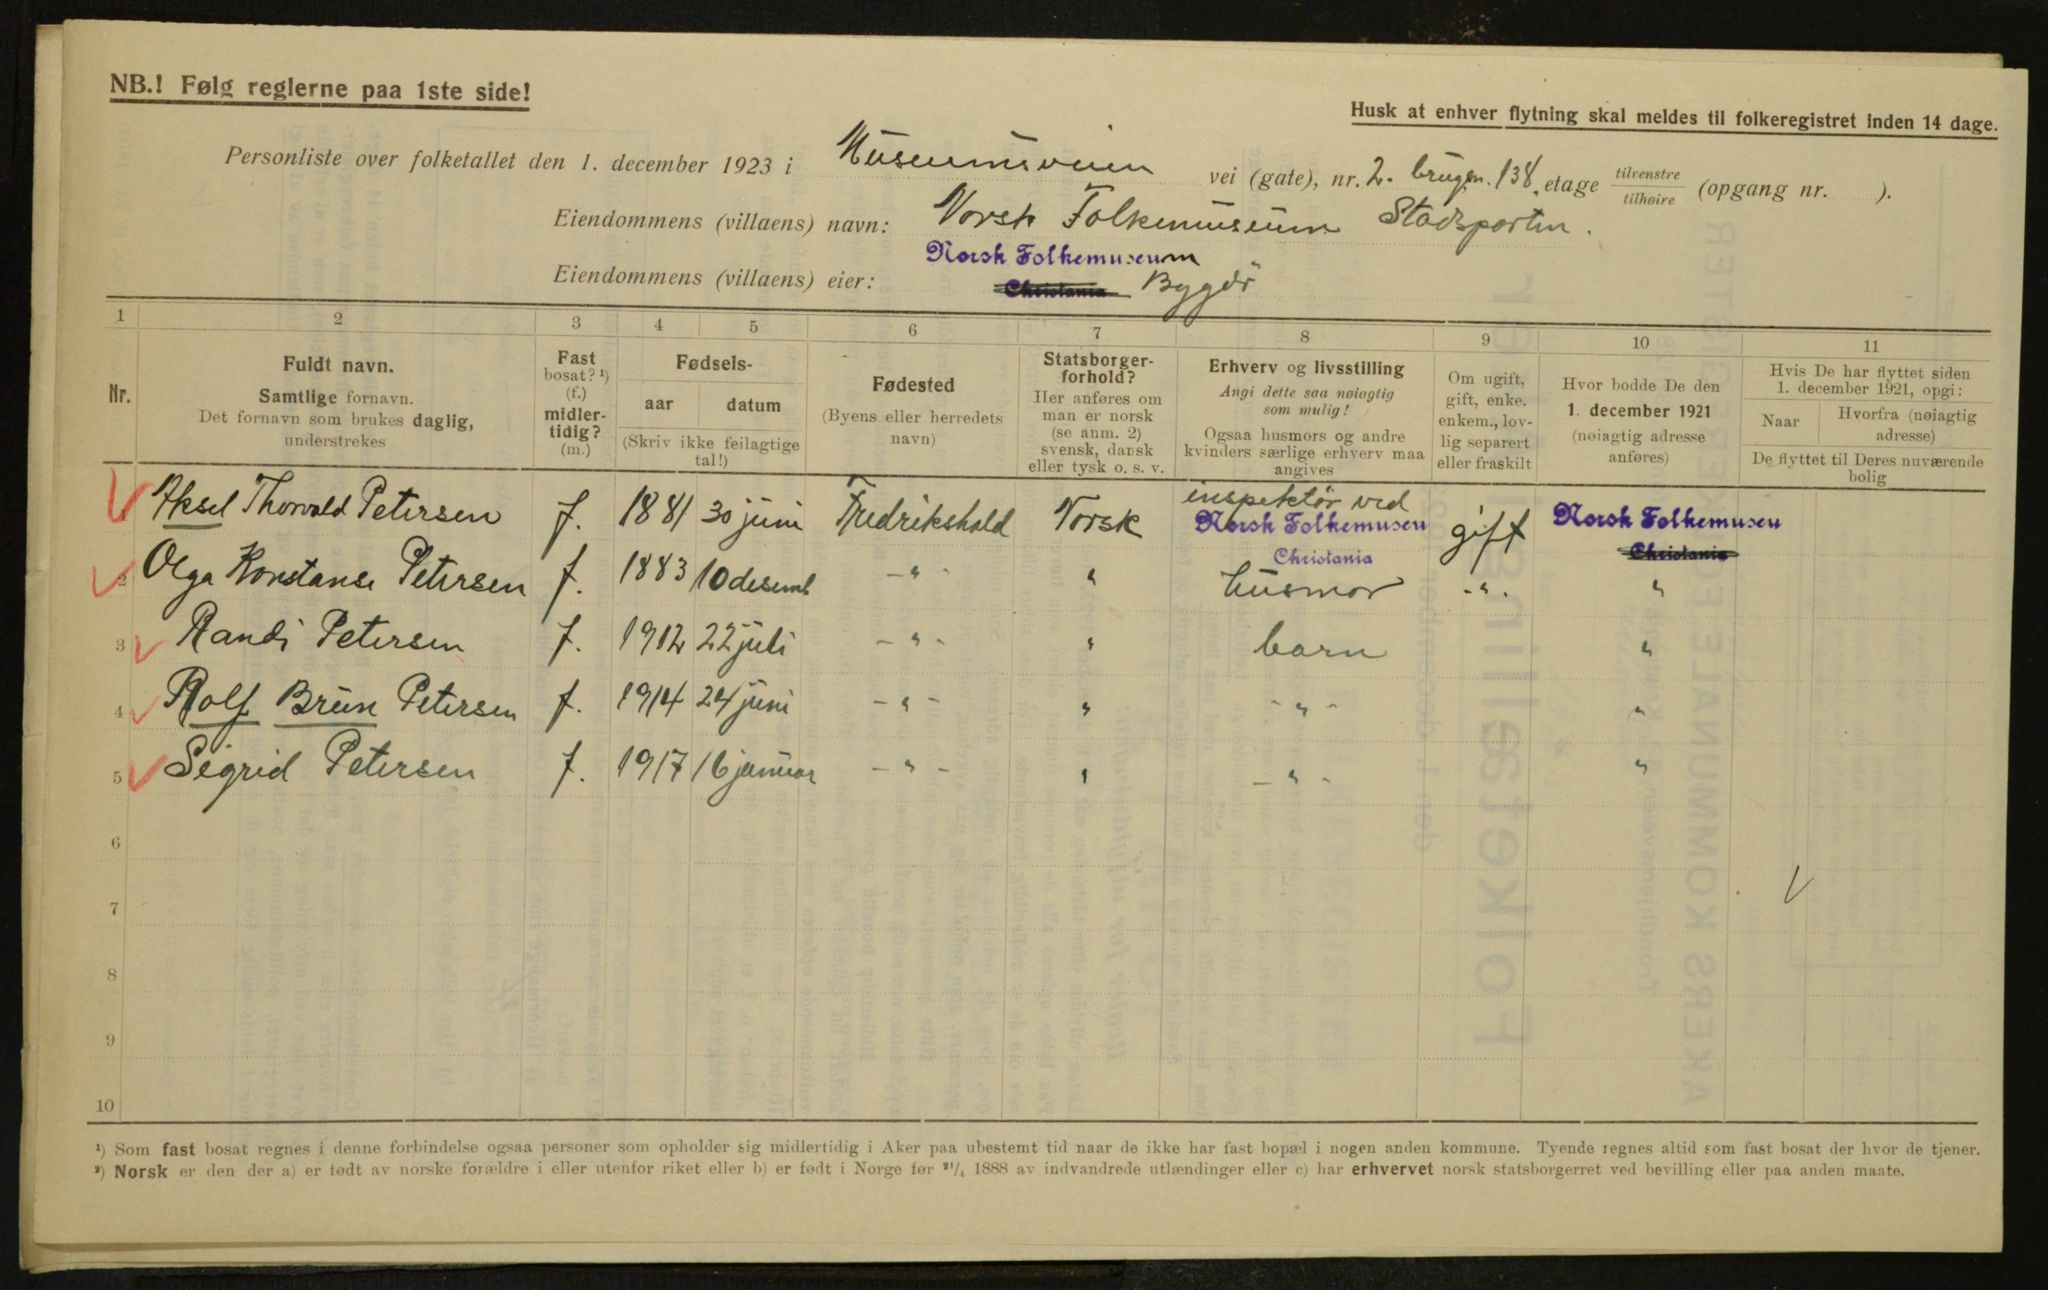 NB.! Følg reglerne paa 1ste side!
Husk at enhver flytning skal meldes til folkeregistret inden 14 dage.
Personliste over folketallet den 1. december 1923 i Museumsveien vei (gate), nr. 2. brugsn. 138. etage tilvenstre / tilhøire (opgang nr. ).
Eiendommens (villaens) navn: Norsk Folkemuseum Stadsporten.
Eiendommens (villaens) eier: Norsk Folkemuseum
Christania Bygdö
1 2 3 4 5 6 7 8 9 10 11
Nr.
Fuldt navn.
Samtlige fornavn.
Det fornavn som brukes daglig,
understrekes
Fast
bosat? ¹)
(f.)
midler-
tidig?
(m.)
Fødsels-
aar datum
(Skriv ikke feilagtige
tal!)
Fødested
(Byens eller herredets
navn)
Statsborger-
forhold?
Her anføres om
man er norsk
(se anm. 2)
svensk, dansk
eller tysk o. s. v.
Erhverv og livsstilling
Angi dette saa nøiagtig
som mulig!
Ogsaa husmors og andre
kvinders særlige erhverv maa
angives
Om ugift,
gift, enke.
enkem., lov-
lig separert
eller fraskilt
Hvor bodde De den
1. december 1921
(nøiagtig adresse
anføres)
Hvis De har flyttet siden
1. december 1921, opgi:
Naar Hvorfra (nøiagtig
adresse)
De flyttet til Deres nuværende
bolig
inspektör ved
1 Aksel Thorvald Petersen f. 1881 30 juni Fredrikshald Norsk Norsk Folkemuseu gift Norsk Folkemuseu
Christania Christania
2 Olga Konstanse Petersen f. 1883 10 desemb -"- " husmor -"- "
3 Randi Petersen f. 1912 22 juli -"- " barn "
4 Rolf Brun Petersen f. 1914 24 juni -"- " -"- "
5 Sigrid Petersen f. 1917 16 januar -"- " -"- "
6
7
8
9
10
¹) Som fast bosat regnes i denne forbindelse ogsaa personer som opholder sig midlertidig i Aker paa ubestemt tid naar de ikke har fast bopæl i nogen anden kommune. Tyende regnes altid som fast bosat der hvor de tjener.
²) Norsk er den der a) er født av norske forældre i eller utenfor riket eller b) er født i Norge før ²¹/₄ 1888 av indvandrede utlændinger eller c) har erhvervet norsk statsborgerret ved bevilling eller paa anden maate.